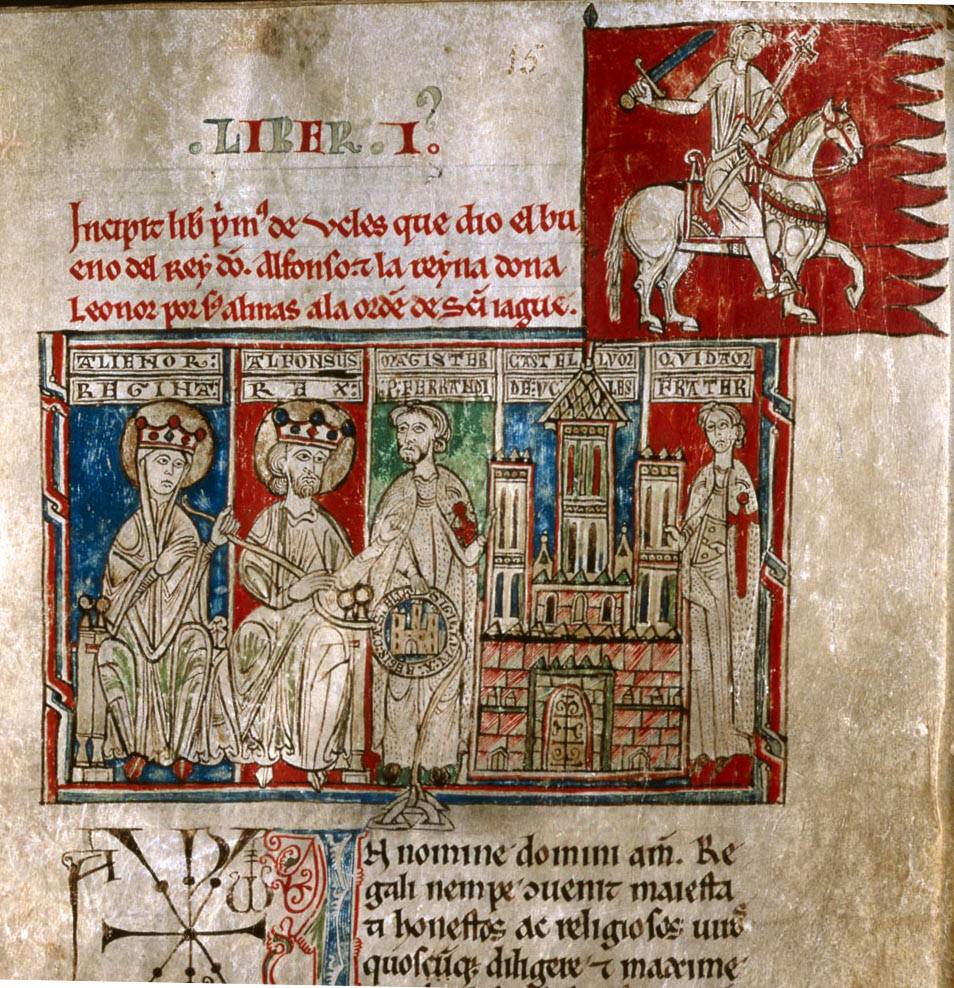 15
.LIBER.I.
Incipit lib̄ p̄mꝰ de vcles que dio el bu
eno del Rey dō. Alfonso ⁊ la reyna dona
Leonor por sꝰ almas ala ordē de sc̄i iague.
ALIENOR: ALFONSUS MAGISTER CASTELLVM QVIDAM
REGINA: REX: P. FERRANDI DE VCLES FRATER
N nomine domini am̄. Re
gali nempe ɔuenit maiesta
ti honestos ac religiosos uiros
quoscūqꝫ diligere ⁊ maxime